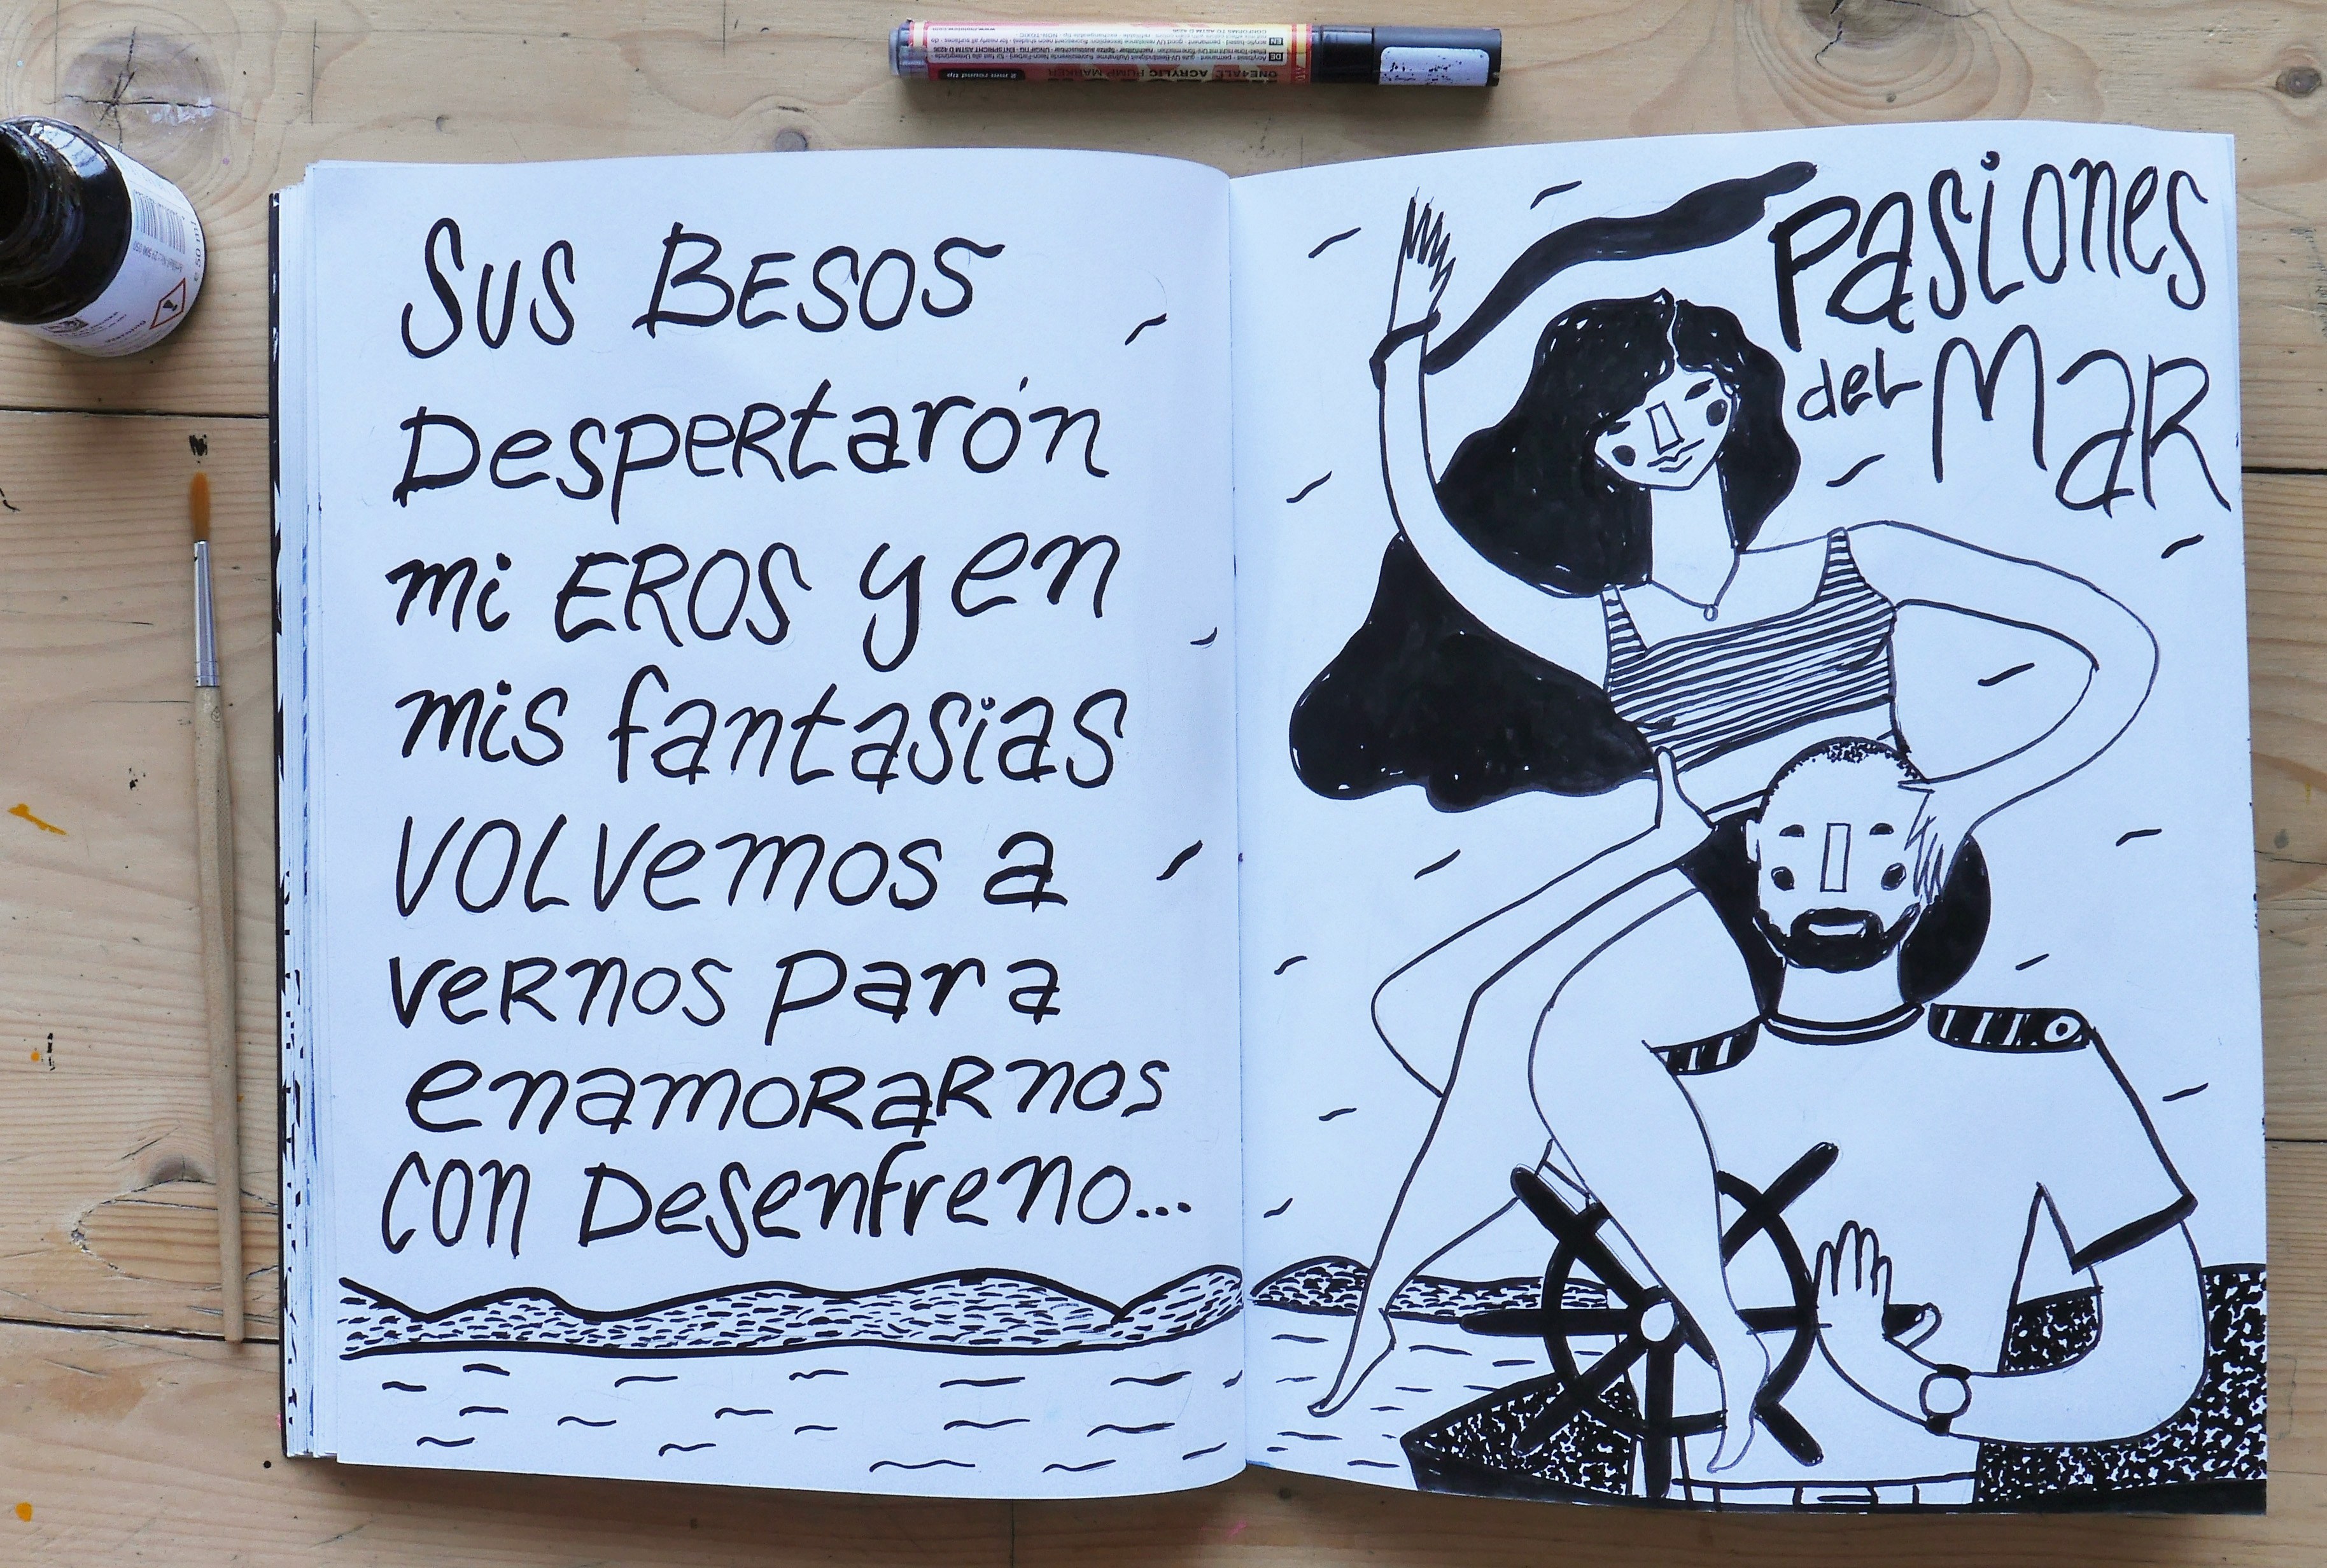 Sus BESOS
Despertarón
mi EROS y en
mis fantasias
volvemos a
vernos para
enamorarnos
con Desenfreno...
Pasiones
del Mar
ONE4ALL ACRYLIC PUMP MARKER
2 mm round tip
50 ml